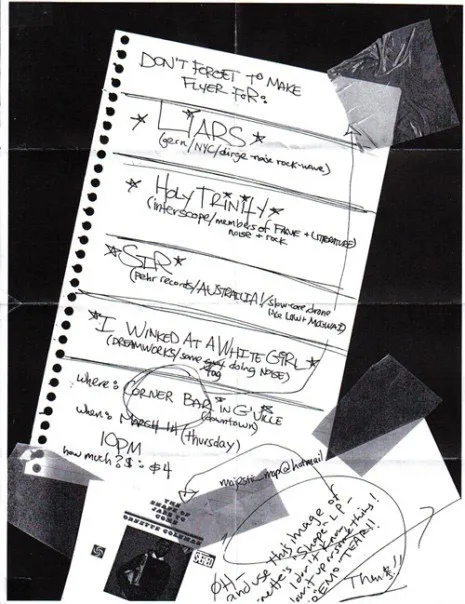 DON'T FORGET TO MAKE
FLYER FOR:
LIARS
(gern/NYC/dirge-noise rock-wave)
HOLY TRINITY
(interscope/members of FAUNE + LITERATURE)
noise + rock
SIR
(Pehr records/AUSTRALIA!/slow-core drone
like LOW + MOGWAI)
I WINKED AT A WHITE GIRL
(DREAMWORKS/some doing NOISE)
where: CORNER BAR IN G'VILLE
(downtown)
when: MARCH 14 (thursday)
10PM
how much?$: $4
majestk_map@hotmail
THE
SHAPE OF
JAZZ TO
COME
ORNETTE COLEMAN
OH
and use that image of
Ornette's Shape... LP-
I don't know,
blow it up or something!
DEMO TEAR!!
Thanks!